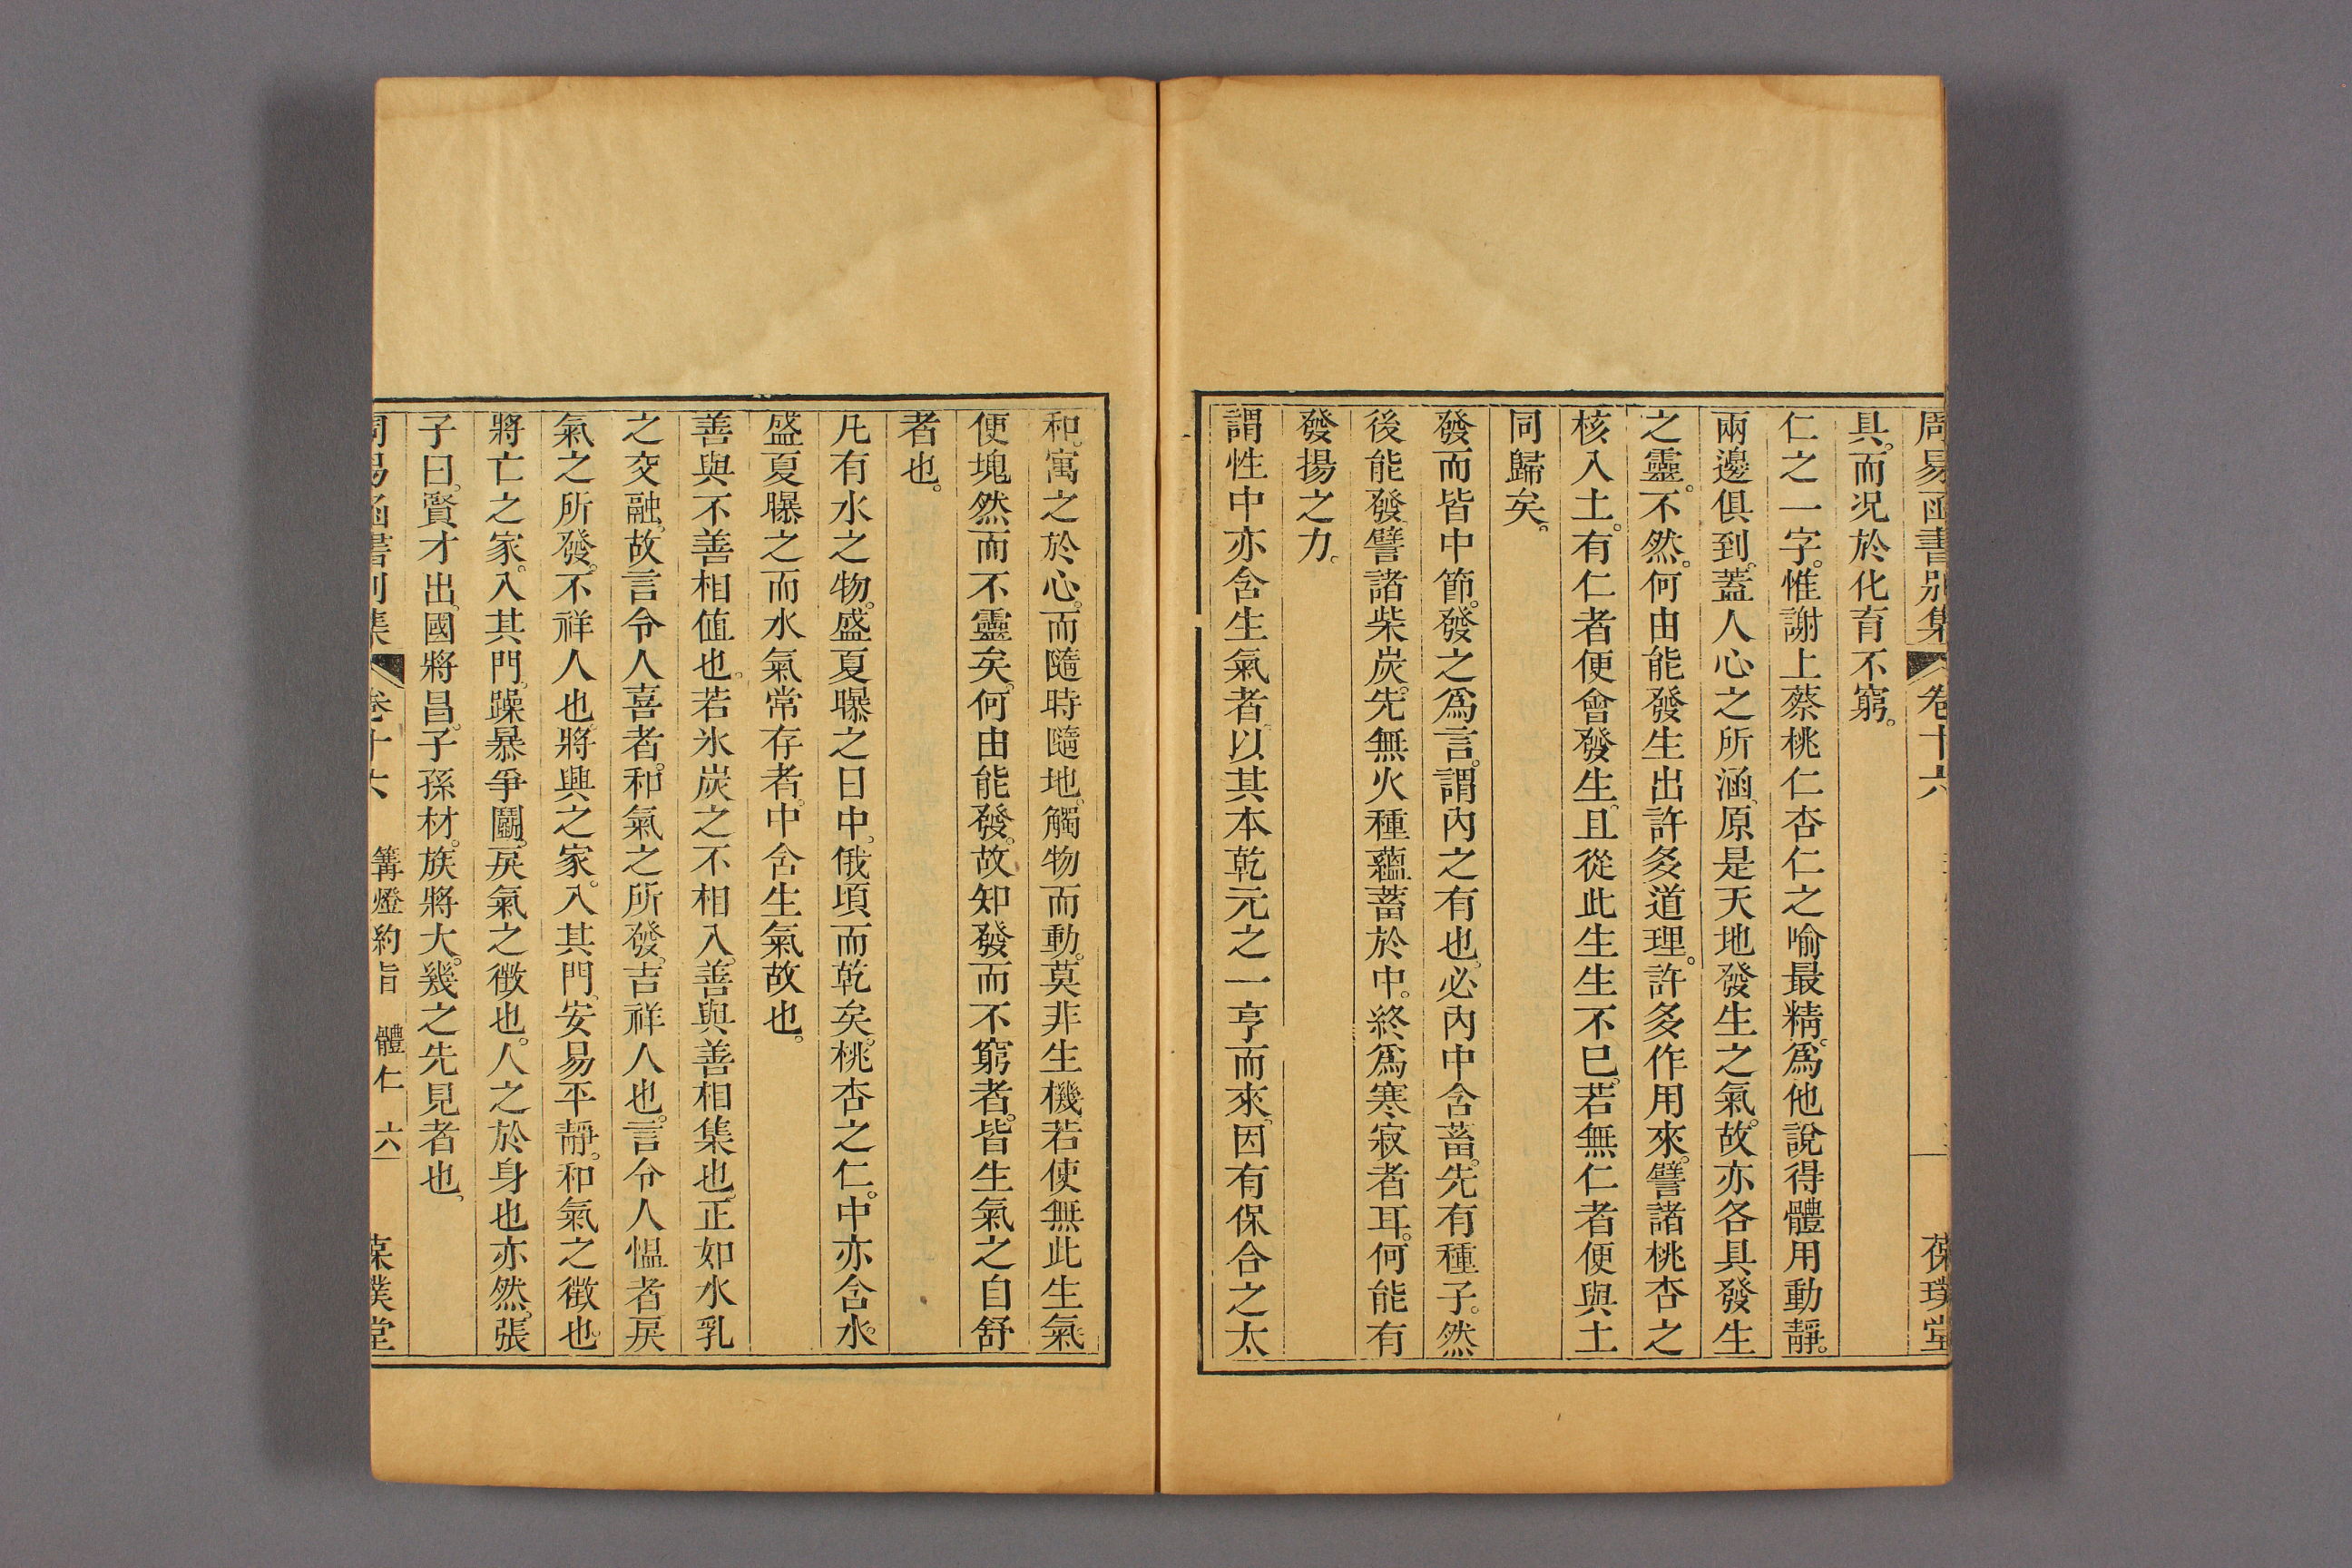 周易函書別集 卷十六 葆璞堂
具。而况於化育不窮。
仁之一字。惟謝上蔡桃仁杏仁之喻最精。爲他說得體用動靜。
兩邊俱到。蓋人心之所涵。原是天地發生之氣。故亦各具發生
之靈。不然。何由能發生出許多道理。許多作用來。譬諸桃杏之
核入土。有仁者便會發生。且從此生生不已。若無仁者便與土
同歸矣。
發而皆中節。發之爲言。謂內之有也。必內中含蓄。先有種子。然
後能發。譬諸柴炭。先無火種蘊蓄於中。終爲寒寂者耳。何能有
發揚之力。
謂性中亦含生氣者。以其本乾元之一亨而來。因有保合之太
和。寓之於心。而隨時隨地。觸物而動。莫非生機。若使無此生氣。
便塊然而不靈矣。何由能發。故知發而不窮者。皆生氣之自舒
者也。
凡有水之物。盛夏曝之日中。俄頃而乾矣。桃杏之仁。中亦含水。
盛夏曝之而水氣常存者。中含生氣故也。
善與不善相值也。若氷炭之不相入。善與善相集也。正如水乳
之交融。故言令人喜者。和氣之所發。吉祥人也。言令人愠者。戾
氣之所發。不祥人也。將興之家。入其門。安易平靜。和氣之徵也。
將亡之家。入其門。躁暴爭鬭。戾氣之徵也。人之於身也亦然。張
子曰。賢才出。國將昌。子孫材。族將大。幾之先見者也。
周易函書別集 卷十六 篝燈約旨 體仁 六 葆璞堂